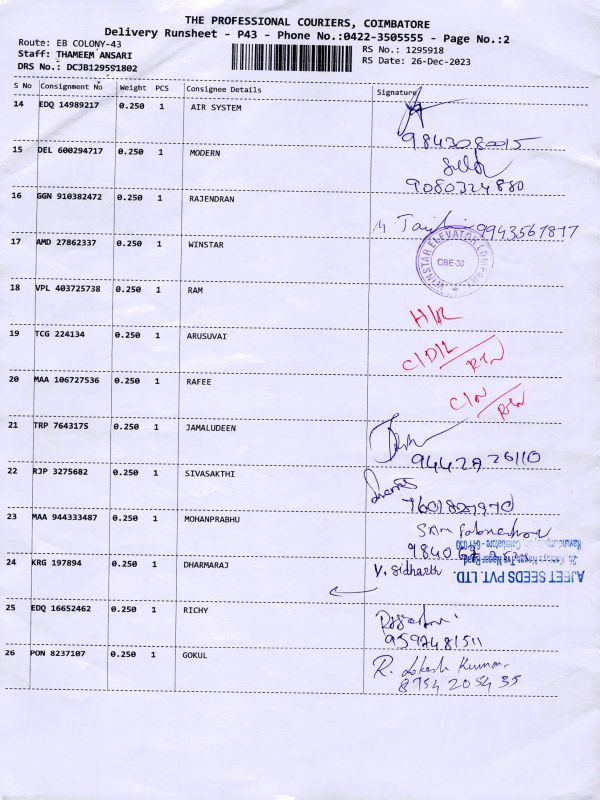 THE PROFESSIONAL COURIERS, COIMBATORE
Delivery Runsheet - P43 - Phone No.:0422-3505555 - Page No.:2
Route: EB COLONY-43 RS No.: 1295918
Staff: THAMEEM ANSARI RS Date: 26-Dec-2023
DRS No.: DCJB129591802
S No Consignment No Weight PCS Consignee Details Signature
14 EDQ 14989217 0.250 1 AIR SYSTEM
15 DEL 600294717 0.250 1 MODERN
9080324880
16 GGN 910382472 0.250 1 RAJENDRAN
9943567877
17 AMD 27862337 0.250 1 WINSTAR
WINSTAR ELEVATOR COMPANY
CBE-30
18 VPL 403725738 0.250 1 RAM
19 TCG 224134 0.250 1 ARUSUVAI
20 MAA 106727536 0.250 1 RAFEE
21 TRP 7643175 0.250 1 JAMALUDEEN
22 RJP 3275682 0.250 1 SIVASAKTHI
23 MAA 944333487 0.250 1 MOHANPRABHU
24 KRG 197894 0.250 1 DHARMARAJ V. Sidharth
AJEET SEEDS PVT. LTD.
25 EDQ 16652462 0.250 1 RICHY
26 PON 8237107 0.250 1 GOKUL R. Lokesh Kumar
8754 205435